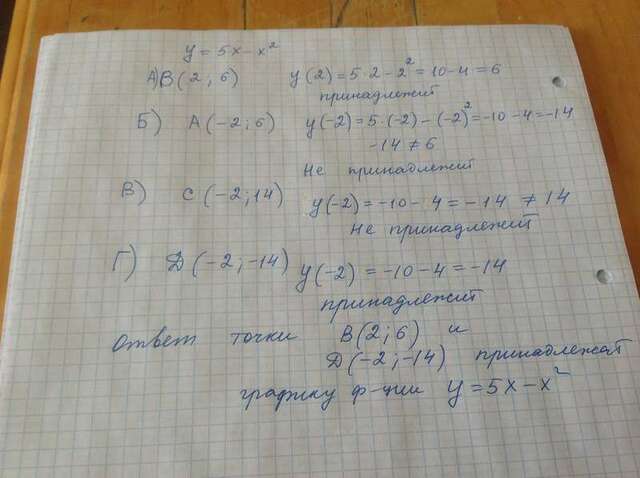 y = 5x - x²
А) B(2; 6) y(2) = 5·2 - 2² = 10 - 4 = 6
принадлежит
Б) A(-2; 6) y(-2) = 5·(-2) - (-2)² = -10 - 4 = -14
-14 ≠ 6
Не принадлежит
В) C(-2; 14) y(-2) = -10 - 4 = -14 ≠ 14
Не принадлежит
Г) Д(-2; -14) y(-2) = -10 - 4 = -14
принадлежит
Ответ точки B(2; 6) и
Д(-2; -14) принадлежат
графику ф-ции y = 5x - x²